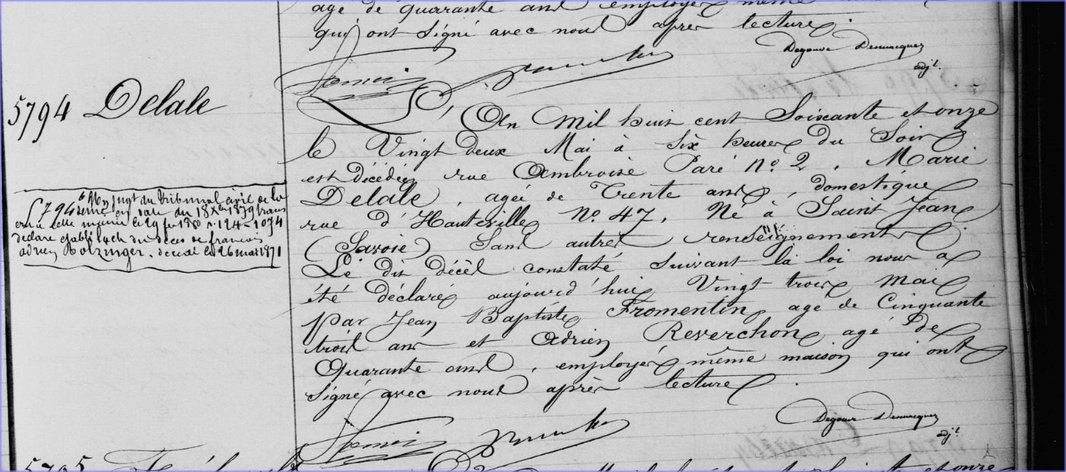 agé de quarante ans employés même
qui ont signé avec nous après lecture.
Degouve Denuncques
adjt.
5794 Delale
L'An Mil huit cent Soixante et onze
le Vingt deux Mai à Six heures du Soir
est décédée, rue Ambroise Paré No. 2, Marie
Delale, agée de Trente ans, domestique
rue d'Hauteville No 47, Né à Saint Jean
(Savoie) Sans autres renseignements
Le dit décès constaté suivant la loi nous a
été déclaré aujourd'hui Vingt-trois Mai
par Jean Baptiste Fromentin agé de Cinquante
trois ans et Adrien Reverchon, agé de
Quarante ans, employés même maison qui ont
Signé avec nous après lecture.
5794 bis Un jugt du Tribunal civil de la
Seine en date du 1879 trans
à cette mairie le
déclare établi acte du décès de francois
adrien Botzinger, décédé le 26 mai 1871
Degouve Denuncques
adjt.
5795